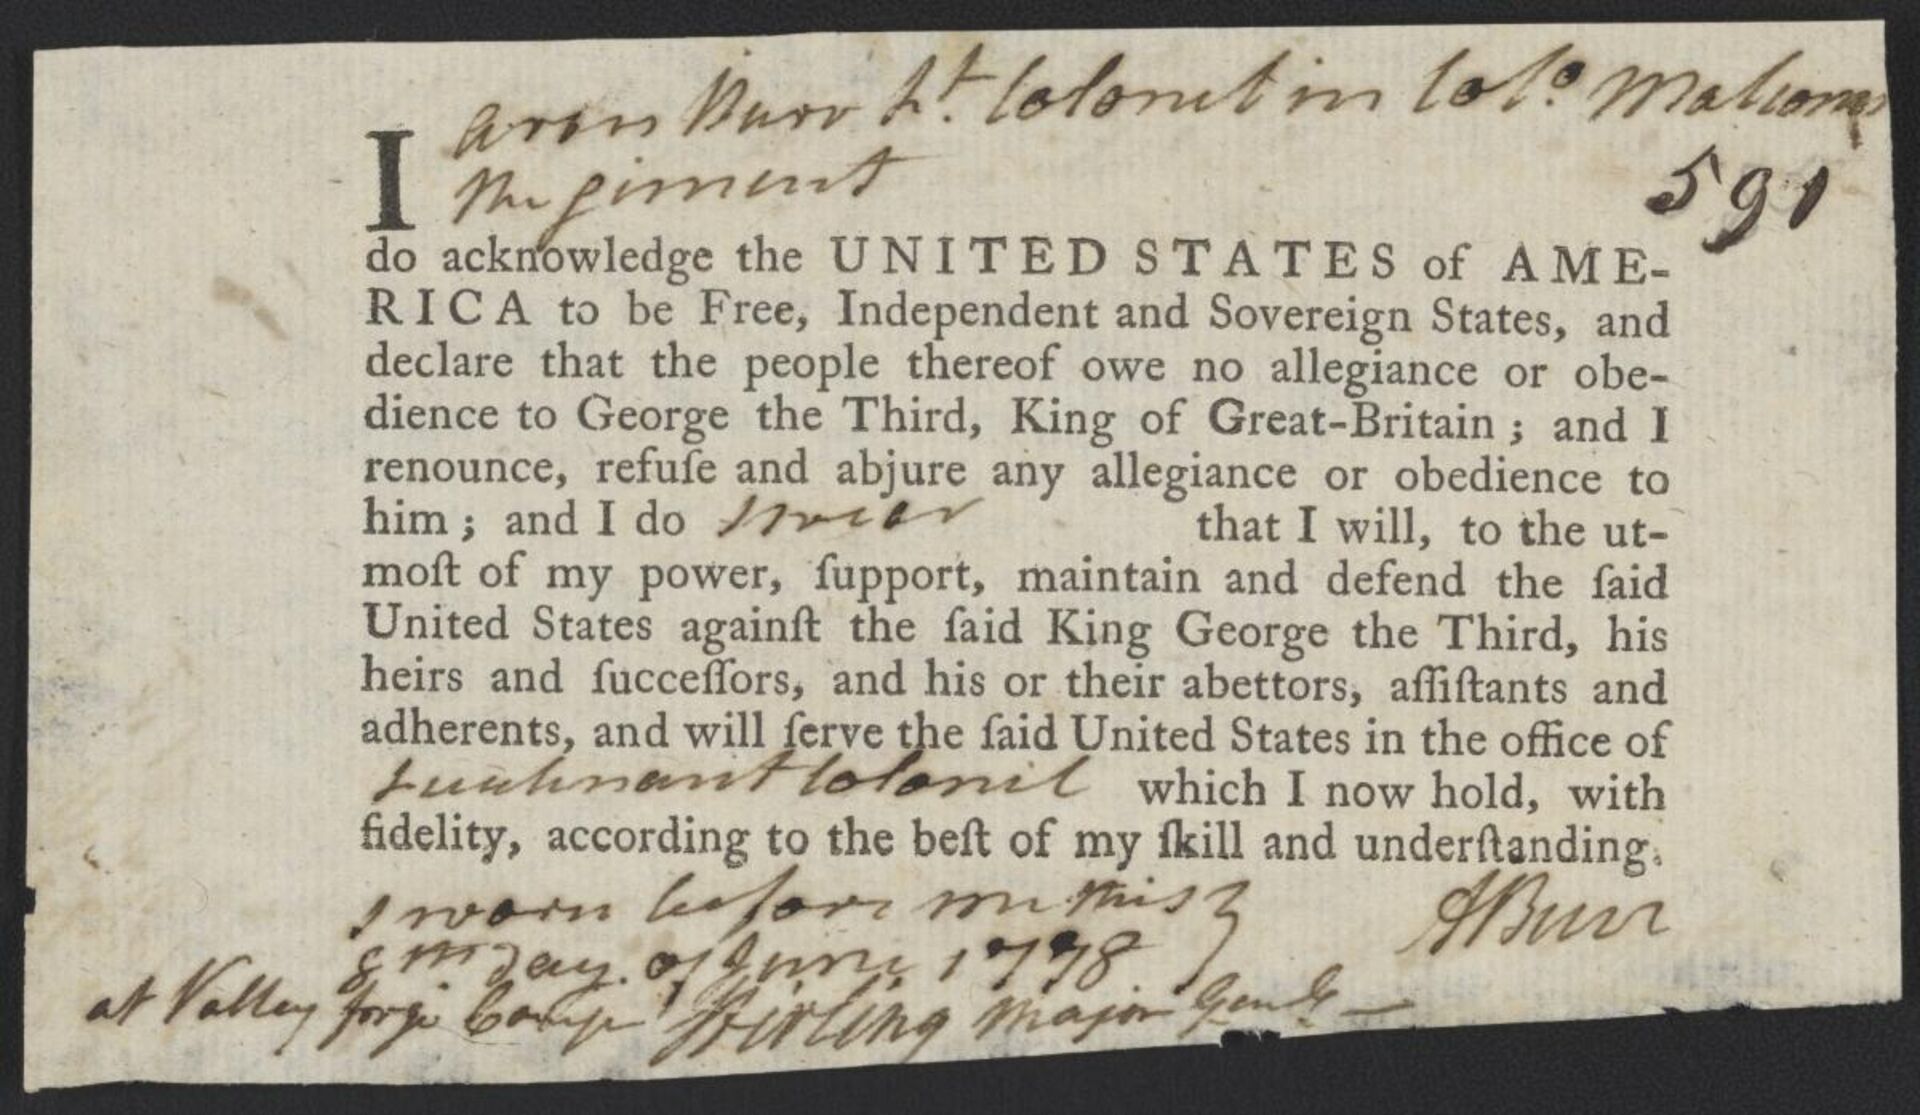 I Aron Burr Lt. Colonel in Colo. Malcoms
Regiment
591
do acknowledge the UNITED STATES of AME-
RICA to be Free, Independent and Sovereign States, and
declare that the people thereof owe no allegiance or obe-
dience to George the Third, King of Great-Britain; and I
renounce, refuſe and abjure any allegiance or obedience to
him; and I do swear that I will, to the ut-
moſt of my power, ſupport, maintain and defend the ſaid
United States againſt the ſaid King George the Third, his
heirs and ſucceſſors, and his or their abettors, aſſiſtants and
adherents, and will ſerve the ſaid United States in the office of
Lieutenant Colonel which I now hold, with
fidelity, according to the beſt of my ſkill and underſtanding.
Sworn before me this
ABurr
8th Day of June 1778
at Valley forge Camp Stirling Major Genl